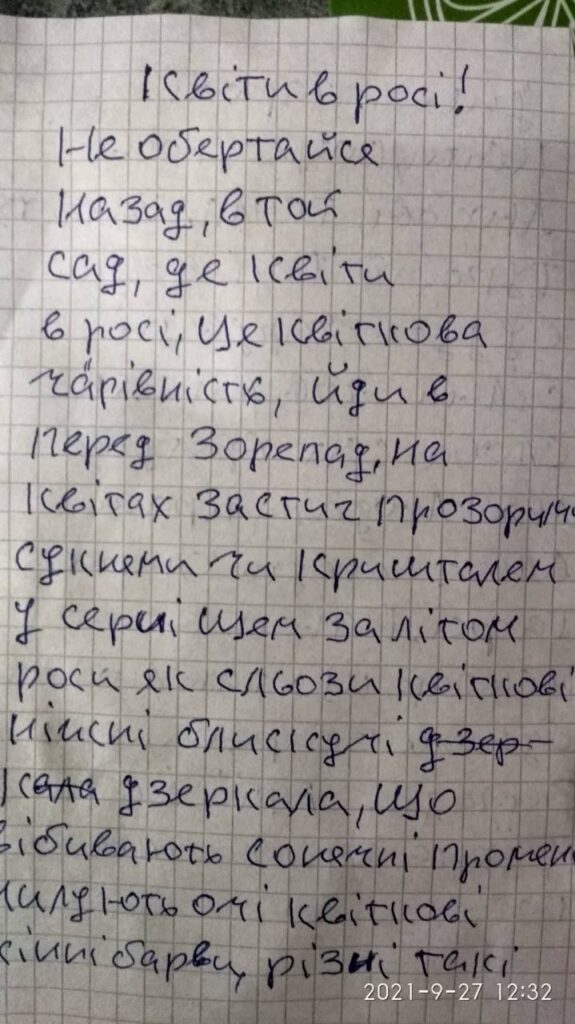 Квіти в росі!
Не обертайся
назад, в той
сад, де квіти
в росі, це квіткова
чарівність, йди в
перед Зорепад, на
квітах застиг прозорими
сукнями чи кришталем
у серпі щем за літом
роси як сльози квіткові
ніжні блискучі дзер-
кала дзеркала, що
відбивають сонячні промен
милують очі квіткові
барви, різні такі
2021-9-27 12:32